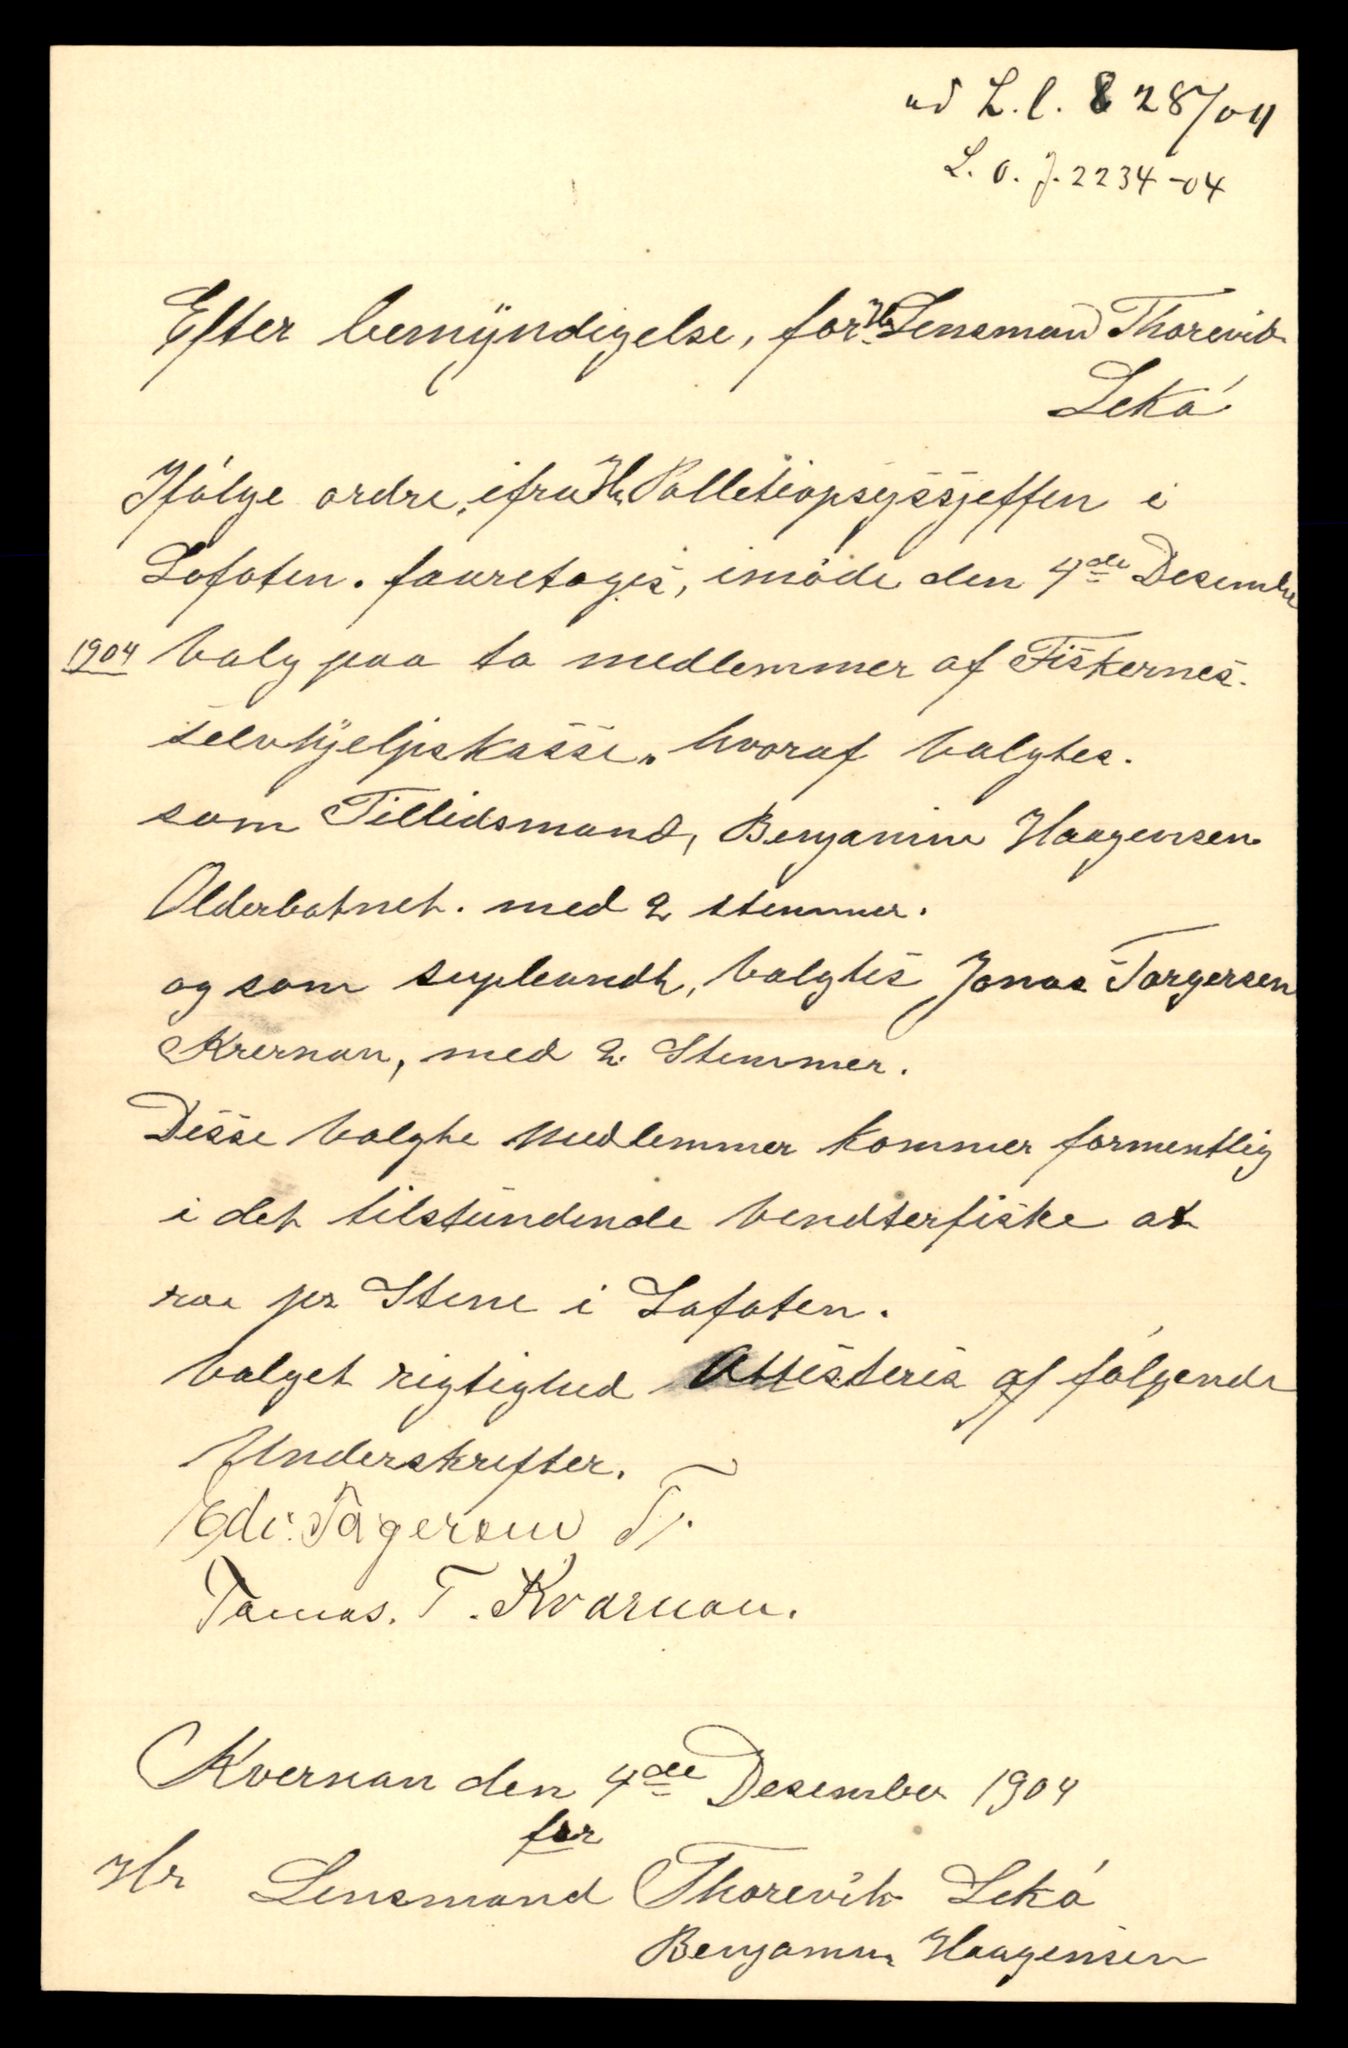 ad L.l. 828/04
L. o. J. 2234-04
Efter bemÿndigelse, for Hr. Lensmand Thorevik
Lekó
Ifólge ordre, ifra Hr. Polletiopsÿssjeffen i
Lofoten. fauretages, imöde den 4de Desember
1904 valg paa to medlemmer af Fiskernes.
selvhjelpskasse„ hvoraf valgtes.
som Tillidsmand, Benjamin Haagensen
Olderbotnet. med 2 stemmer.
og som supleandt, valgtes Jonas Torgersen
Krernan, med 2 Stemmer.
Disse valgte Medlemmer kommer formentlig
i det tilstundende vendterfiske at
roe pr Stene i Lofoten.
valget rigtighed Attisteres af fólgende
Underskrefter.
Edv. Togersen T.
Tomas. T. Kvarnan.
Kvernan den 4de Desember 1904
for
Hr Lensmand Thorevik Lekó
Benjamin Haagensen